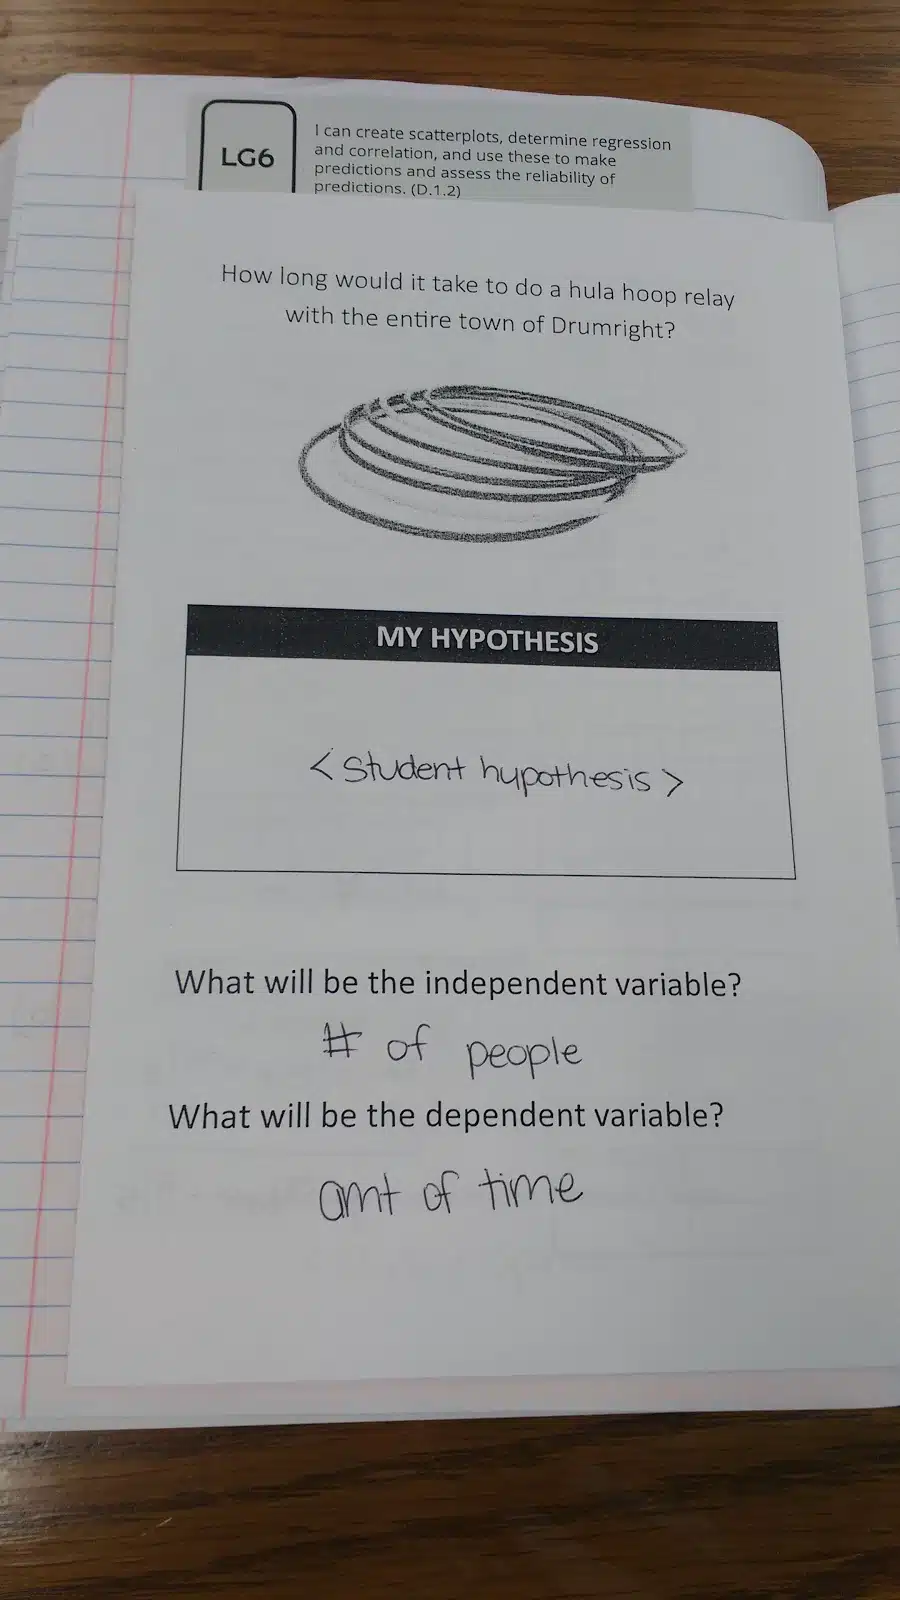 LG6
I can create scatterplots, determine regression
and correlation, and use these to make
predictions and assess the reliability of
predictions. (D.1.2)
How long would it take to do a hula hoop relay
with the entire town of Drumright?
MY HYPOTHESIS
< student hypothesis >
What will be the independent variable?
# of people
What will be the dependent variable?
amt of time